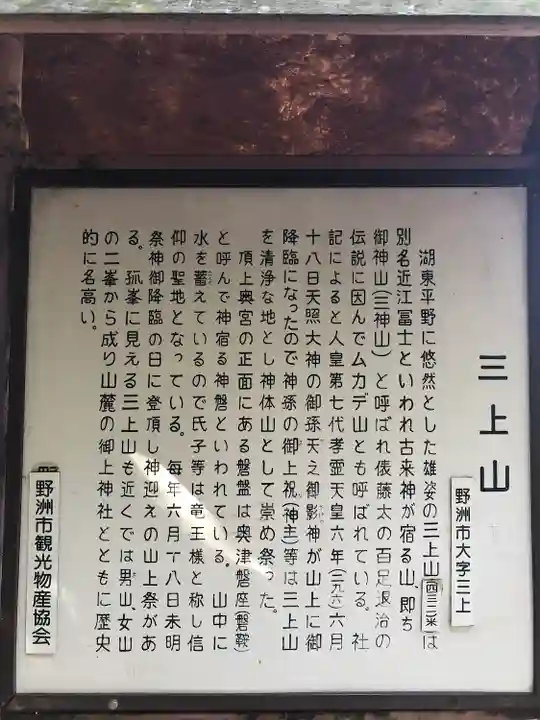 三上山
野洲市大字三上
湖東平野に悠然とした雄姿の三上山(四三二米)は
別名近江冨士といわれ古来神が宿る山、即ち
御神山(三神山)と呼ばれ俵藤太の百足退治の
伝説に因んでムカデ山とも呼ばれている。社
記によると人皇第七代孝霊天皇六年(前二八五)六月
十八日天照大神の御孫天之御影神が山上に御
降臨になったので神孫の御上祝(神主)等は三上山
を清浄な地とし神体山として崇め祭った。
頂上奥宮の正面にある磐盤は奥津磐座(磐鞍)
と呼んで神宿る神磐といわれている。山中に
水を蓄えているので氏子等は竜王様と称し信
仰の聖地となっている。毎年六月十八日未明
祭神御降臨の日に登頂し神迎えの山上祭があ
る。孤峯に見える三上山も近くでは男山、女山
の二峯から成り山麓の御上神社とともに歴史
的に名高い。
野洲市観光物産協会